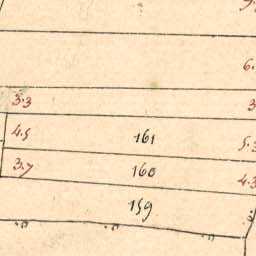 3.3
4.5 161
3.7 160 4.3
159